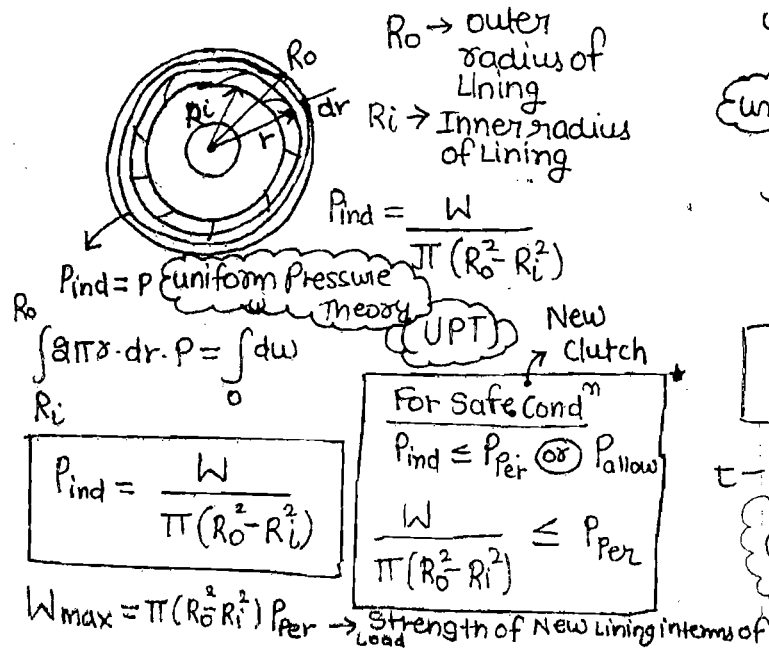 Ro → outer
radius of
Lining
Ri → Inner radius
of Lining
Ro
Ri
dr
r
Pind = W / π(Ro² - Ri²)
Pind = P uniform Pressure
Theory
UPT
New
Clutch
∫ 2πr·dr·P = ∫ dw
Ro
Ri
0
Pind = W / π(Ro² - Ri²)
For Safe Condⁿ
Pind ≤ PPer or Pallow
W / π(Ro² - Ri²) ≤ PPer
Wmax = π(Ro² - Ri²) PPer → Strength of New Lining in terms of
Load